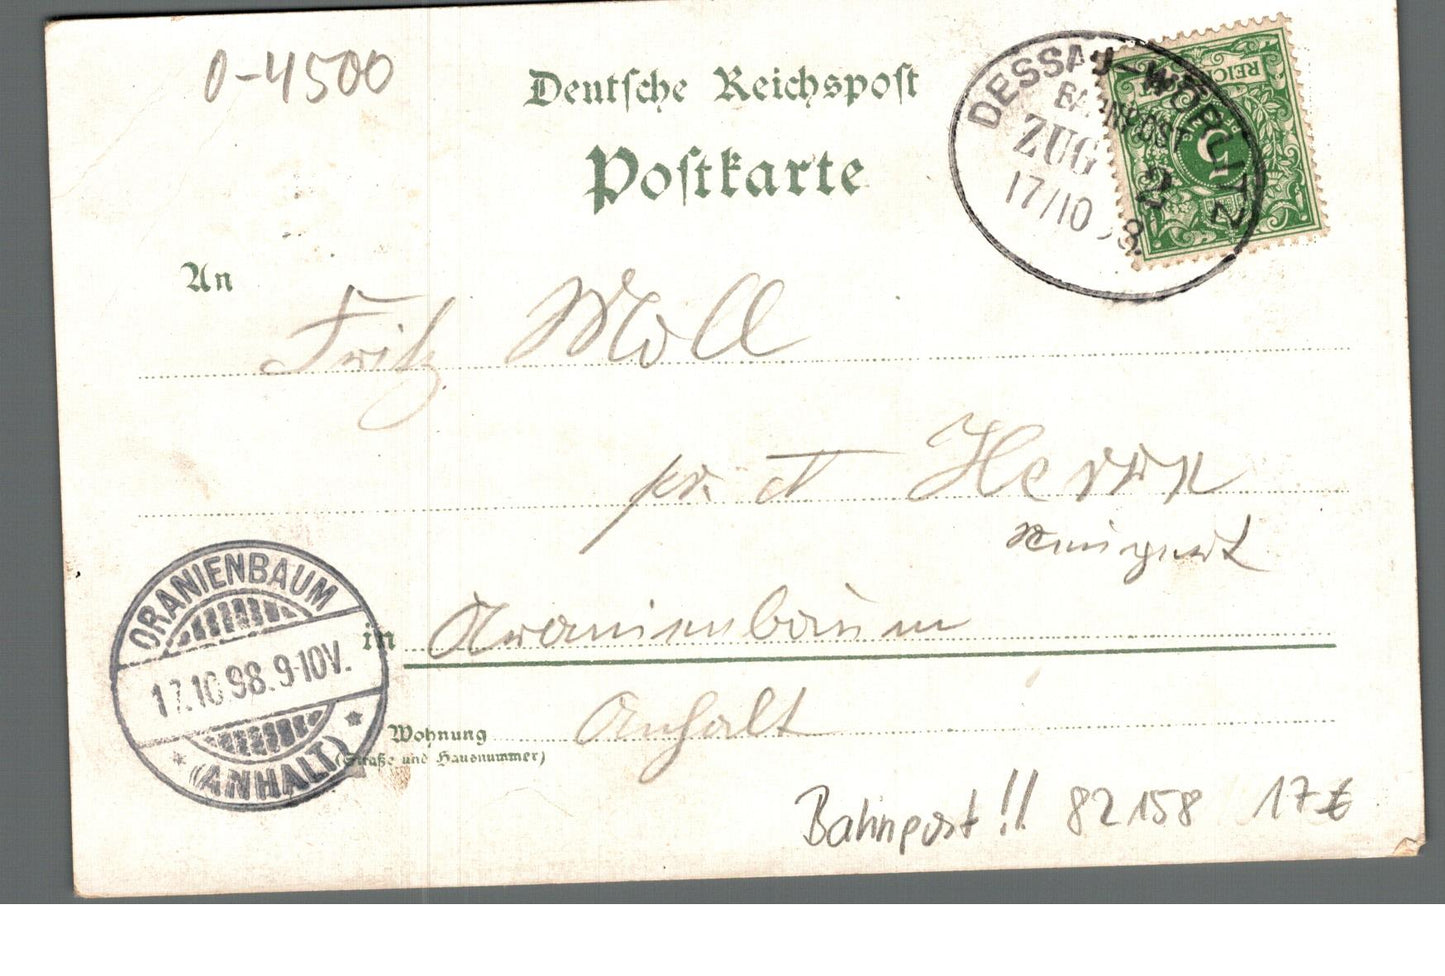 0-4500
Deutsche Reichspost
Postkarte
DESSAU-WÖRLITZ
BAHNPOST
ZUG 2
17/10 98.
REICHS
5
An
Fritz Moll
pr. A Herrn
in Oranienbaum
Anhalt
Wohnung
(Straße und Hausnummer)
ORANIENBAUM
17.10.98.9-10V.
* (ANHALT) *
Bahnpost!! 82158 17€